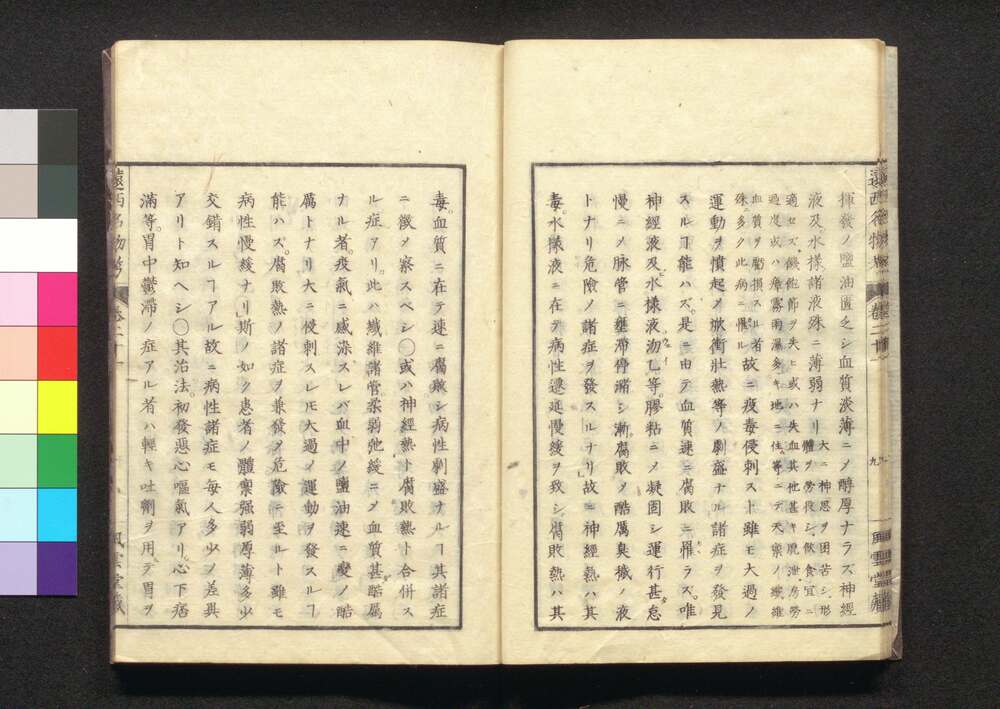 揮發ノ鹽油匱乏シ血質淡薄ニ〆醇厚ナラズ神經
液及水様諸液殊ニ薄弱ナリ大ニ神思ヲ困苦シ、形
體ヲ勞役シ、飲食宜ニ
適セズ、饑飽節ヲ失ヒ或ハ失血其他甚キ脱泄、房勞
過度或ハ瘴霧雨濕多キ地ニ住等ニテ天稟ノ纖維
血質ヲ虧損スル者
殊多ク此病ニ罹ル故ニ疫毒侵刺スト雖モ大過ノ
運動ヲ憤起〆焮衝壯熱等ノ劇盛ナル諸症ヲ發見
スルヿ能ハズ。是ニ由テ血質速ニ腐敗ニ罹ラズ。唯
神經液及ビ水様液沕乙等。膠粘ニ〆凝固シ運行甚怠
慢ニ〆脉管ニ壅滞停瀦シ漸腐敗〆酷厲臭穢ノ液
トナリ危險ノ諸症ヲ發スルナリ故ニ神經熱ハ其
毒。水様液ニ在テ病性遷延慢緩ヲ致シ。腐敗熱ハ其
九
風雲堂藏
毒。血質ニ在テ速ニ腐敗シ病性剌盛ナルヿ其諸症
ニ徴〆察スベシ〇或ハ神經熱ト腐敗熱ト合併ス
ル症アリ。此ハ纖維諸管柔弱弛縵ニ〆血質甚酷厲
ナル者。疫氣ニ感染スレバ血中ノ鹽油速ニ變〆酷
厲トナリ大ニ侵刺スレモ大過ノ運動ヲ發スルヿ
能ハズ。腐敗熱ノ諸症ヲ兼發〆危險ニ至ルト雖モ
病性慢緩ナリ斯ノ如ク患者ノ體稟强弱厚薄多少
交錯スルヿアル故ニ病性諸症モ毎人多少ノ差異
アリト知ヘシ〇其治法。初發惡心嘔氣アリ。心下痞
滿等。胃中鬱滞ノ症アル者ハ輕キ吐劑ヲ用テ胃ヲ
遠西名物考
卷二十
風雲堂藏